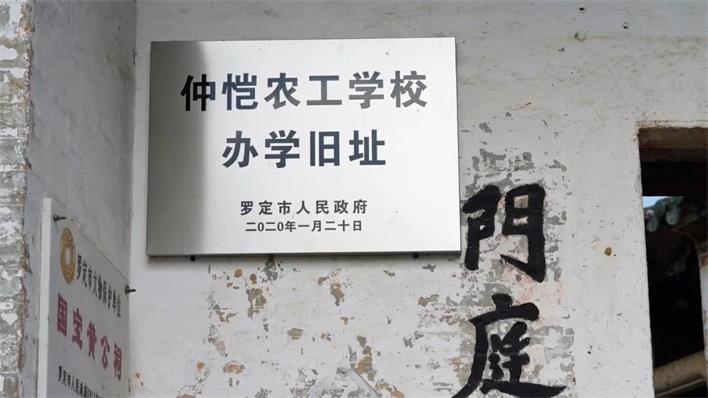 仲恺农工学校
办学旧址
罗定市人民政府
二〇二〇年一月二十日
門庭
罗定市文物保护单位
国宝黄公祠
罗定市人民政府